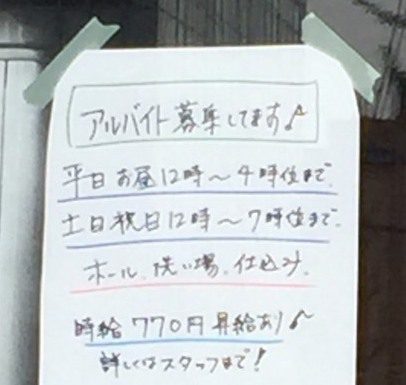 アルバイト募集してます♪
平日お昼12時～4時位まで.
土日祝日12時～7時位まで.
ホール、洗い場、仕込み.
時給770円昇給あり♪
詳しくはスタッフまで!